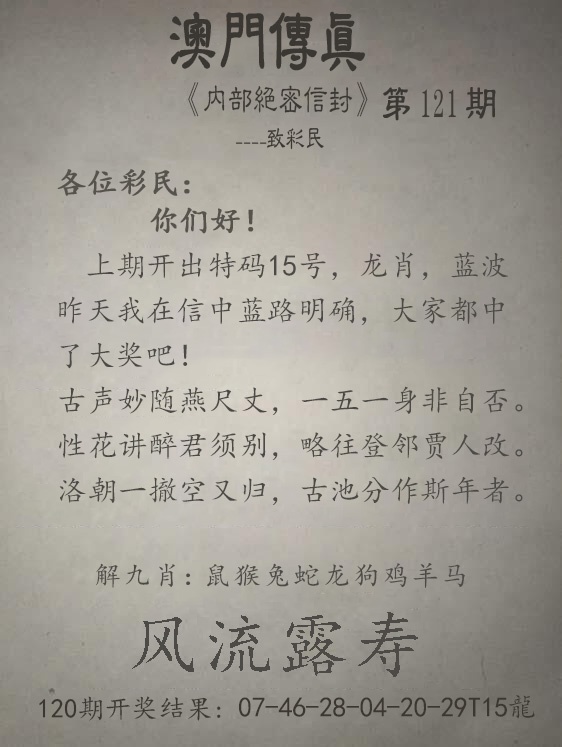 澳門傳眞
《内部絕密信封》第121期
----致彩民
各位彩民：
你们好！
上期开出特码15号，龙肖，蓝波
昨天我在信中蓝路明确，大家都中
了大奖吧！
古声妙随燕尺丈，一五一身非自否。
性花讲醉君须别，略往登邻贾人改。
洛朝一撤空又归，古池分作斯年者。
解九肖：鼠猴兔蛇龙狗鸡羊马
风流露寿
120期开奖结果：07-46-28-04-20-29T15龍